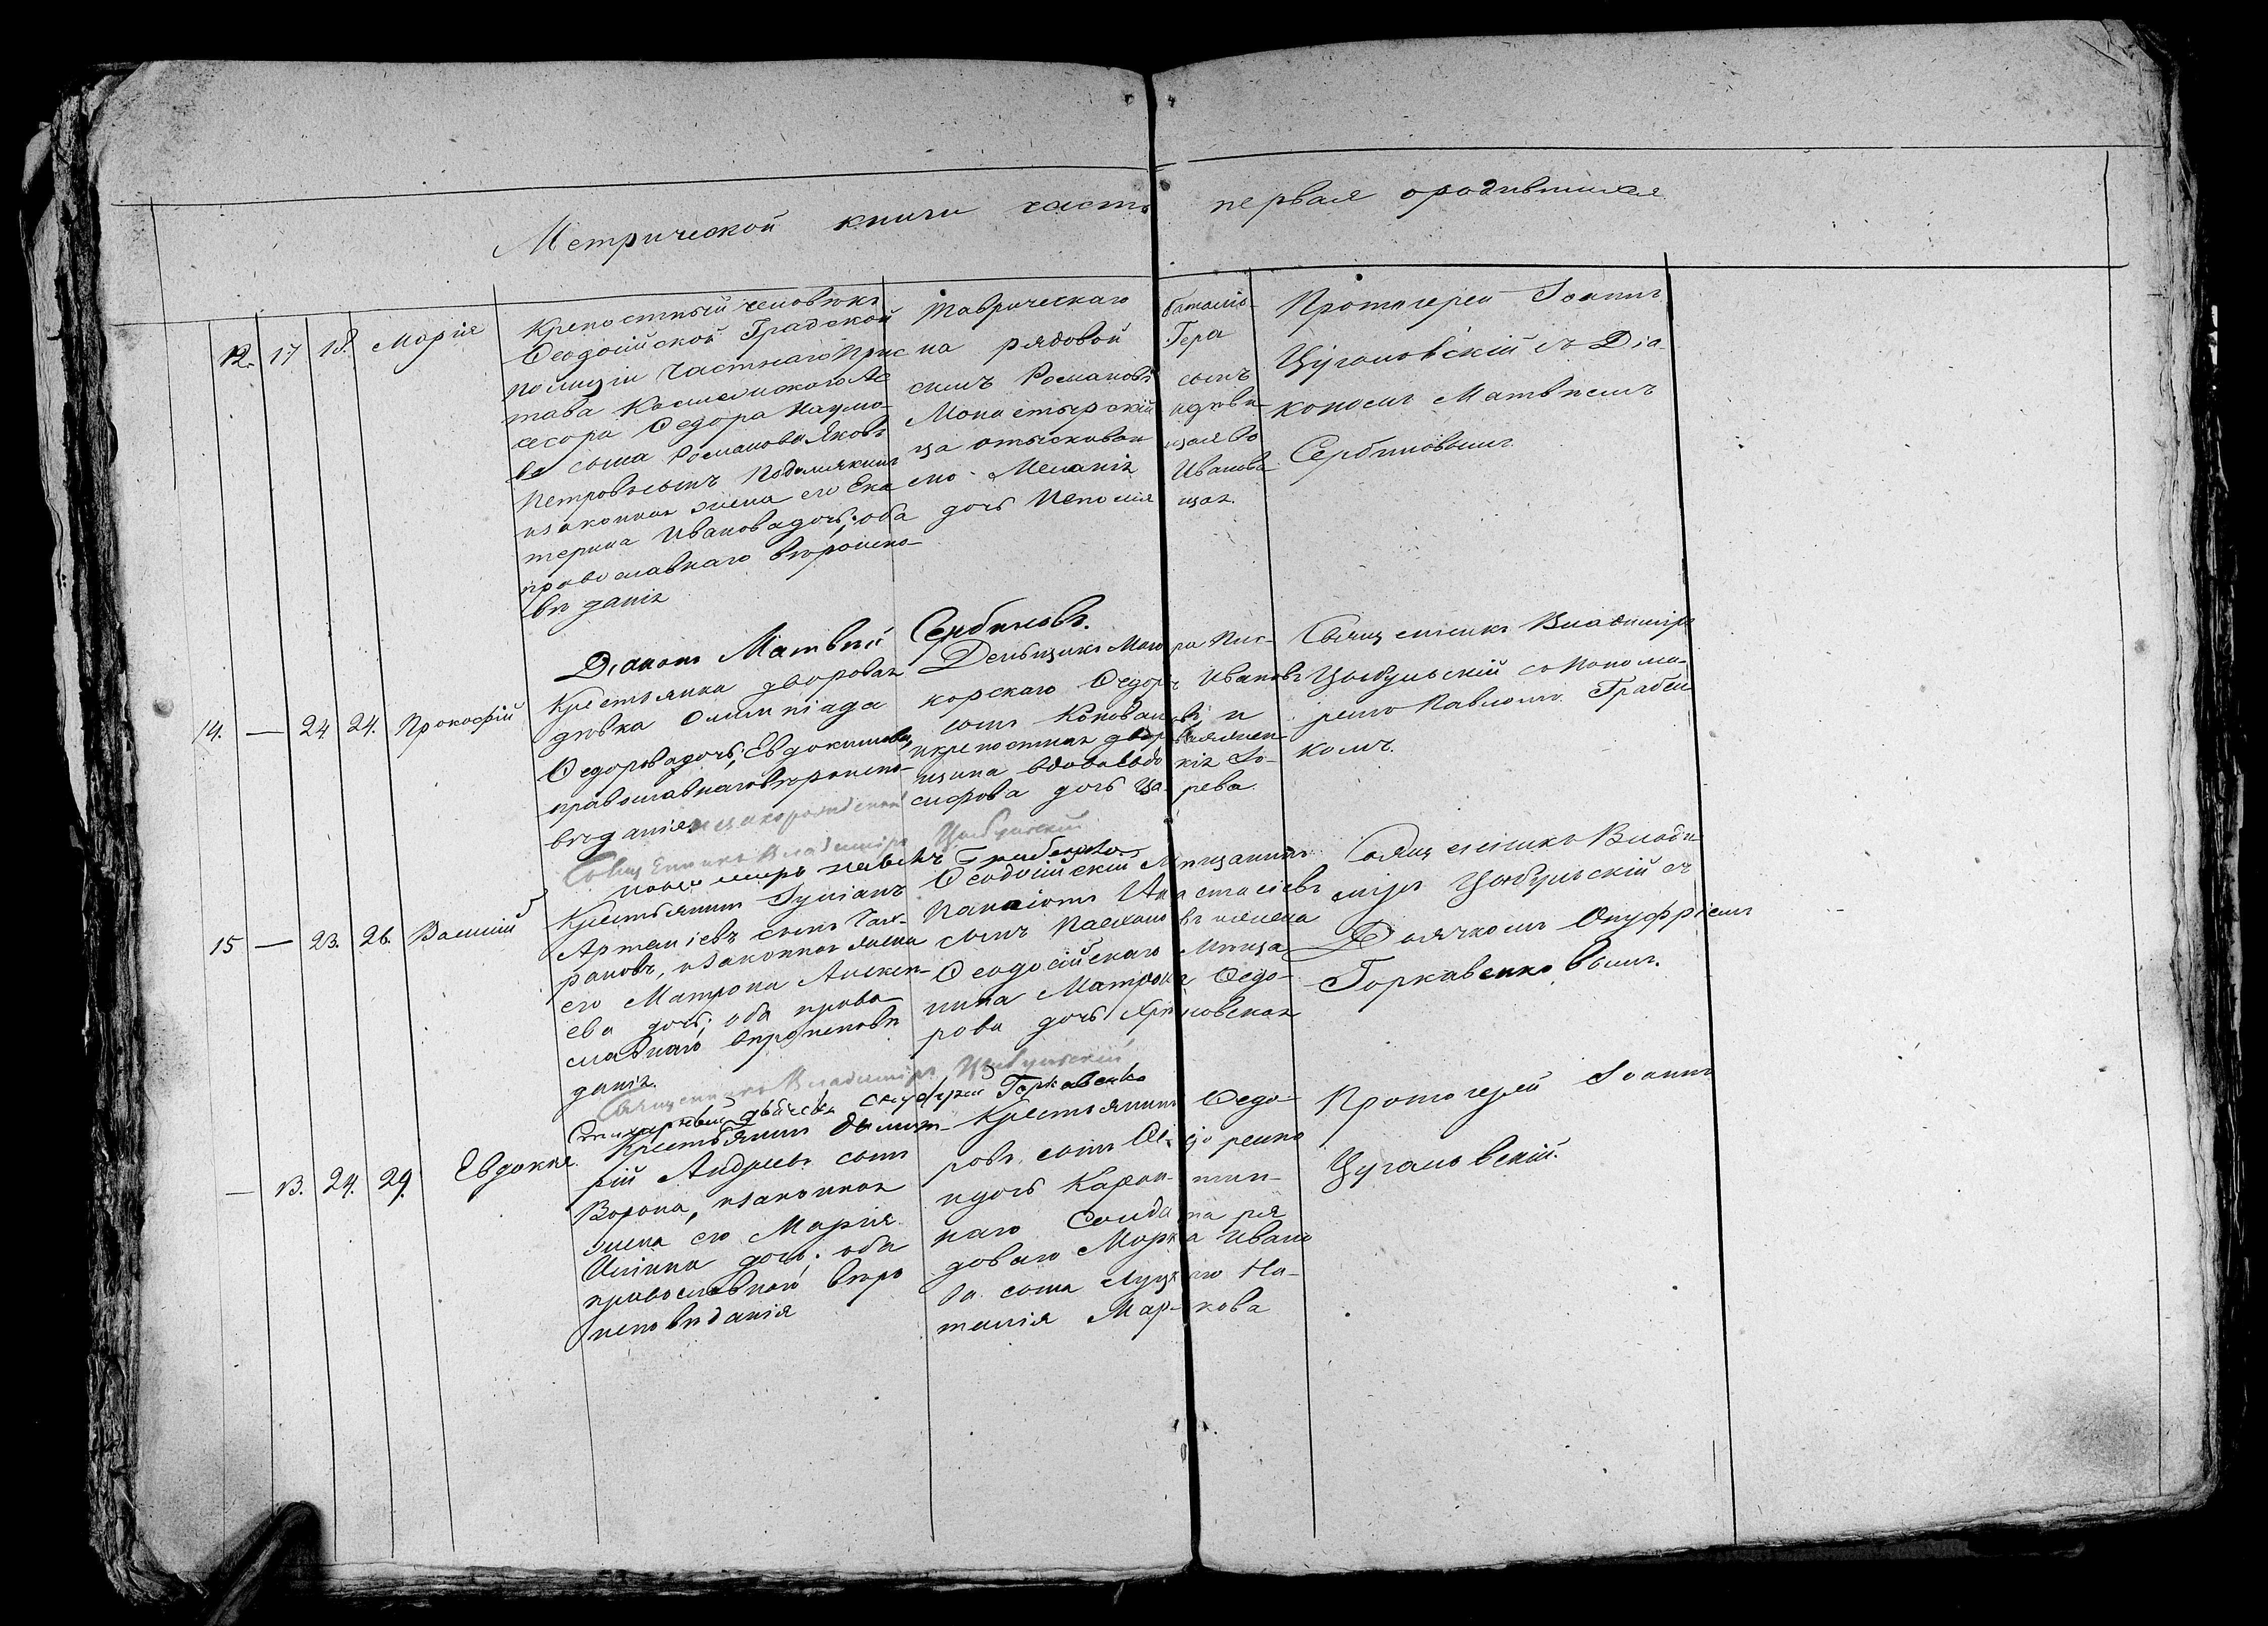 Метрической книги часть первая о родившихся
12. 17 18. Марія
Крепостный человѣкъ
Ѳеодосійской Градской
полиціи Частнаго Прис
тава
сесора Ѳедора Наумо-
ва сына Романова Яковъ
Петровъ сынъ
изаконная жена его Ека
терина Иванова дочь; оба
православнаго вѣроиспо-
вѣданія
Таврическаго баталіо-
на рядовой Гера
симъ Романовъ сынъ
Монастырскій ивдови
ца
Меланія Иванова
дочь
Протоіерей Іоаннъ
Цугановскій съ Діа-
кономъ Матвѣемъ
Сербиновымъ
Діаконъ Матвѣй Сербиновъ.
14. — 24 24. Прокофій
Крестьянка дворовая
дѣвка Олимпіада
Ѳедорова дочь, Евдокимова,
православнаго вѣроиспо-
вѣданія незаконорожденный
Деньщикъ Маіора Пис-
корскаго Ѳедоръ Ивановъ
сынъ Коновалов, и
икрепостная
щина вдова Іо-
сифова дочь Царева.
Священникъ Владиміръ
Цыбульскій со Понома-
ремъ Павломъ Грабен
комъ.
Священникъ Владиміръ Цыбульскій
Пономарь Павелъ Грабенко
15 — 23. 26. Василий
Крестьянинъ Іуліанъ
Артеміевъ сынъ
рановъ, изаконная жена
его Матрона Алексѣ-
ева дочь; оба право
славнаго вѣроисповѣ
данія.
Ѳеодосійскій Мѣщанинъ
Панаіотъ Анастасіевъ
сынъ
Ѳеодосійскаго Мѣща
нина Матрона Ѳедо-
рова дочь
Священникъ Влади-
міръ Цыбульскій съ
Дьячкомъ Онуфріемъ
Горкавенковымъ.
Священникъ Владиміръ Цыбульскій
Стихарный дьячекъ Онуфрій Горкавенко
— 13. 24. 29. Евдокія.
Крестьянинъ Димит-
рій Андреевъ сынъ
Ворона, изаконная
жена его Марія
Ильина дочь; оба
православнаго вѣро
исповѣданія
Крестьянинъ Ѳедо-
ровъ сынъ
идочь Каран-тин-
наго Солдата ря
доваго Марка Ивано
ва сына Луцкаго На-
талія Мар-кова
Протоіерей Іоаннъ
Цугановскій.